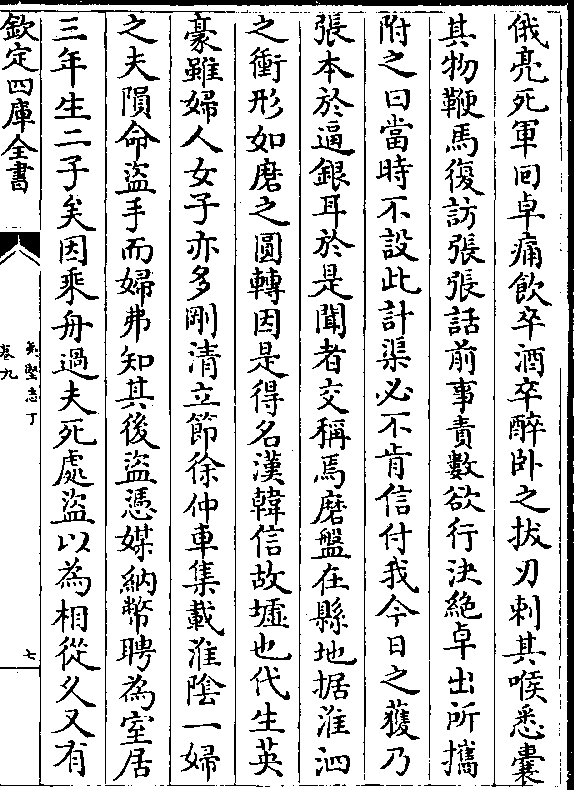 俄亮死軍回卓痛飲卒酒卒醉卧之拔刃刺其喉悉囊
其物鞭馬復訪張張話前事責數欲行決絶卓出所攜
附之曰當時不設此計渠必不肯信付我今日之獲乃
張本於逼銀耳於是聞者交稱焉磨盤在縣地据淮泗
之衝形如磨之圓轉因是得名漢韓信故墟也代生英
豪雖婦人女子亦多剛清立節徐仲車集載淮隂一婦
之夫隕命盜手而婦弗知其後盜憑媒納幣聘為室居
三年生二子矣因乘舟過夫死處盜以為相從久又有
欽定四庫全書
夷堅志丁
卷九
七